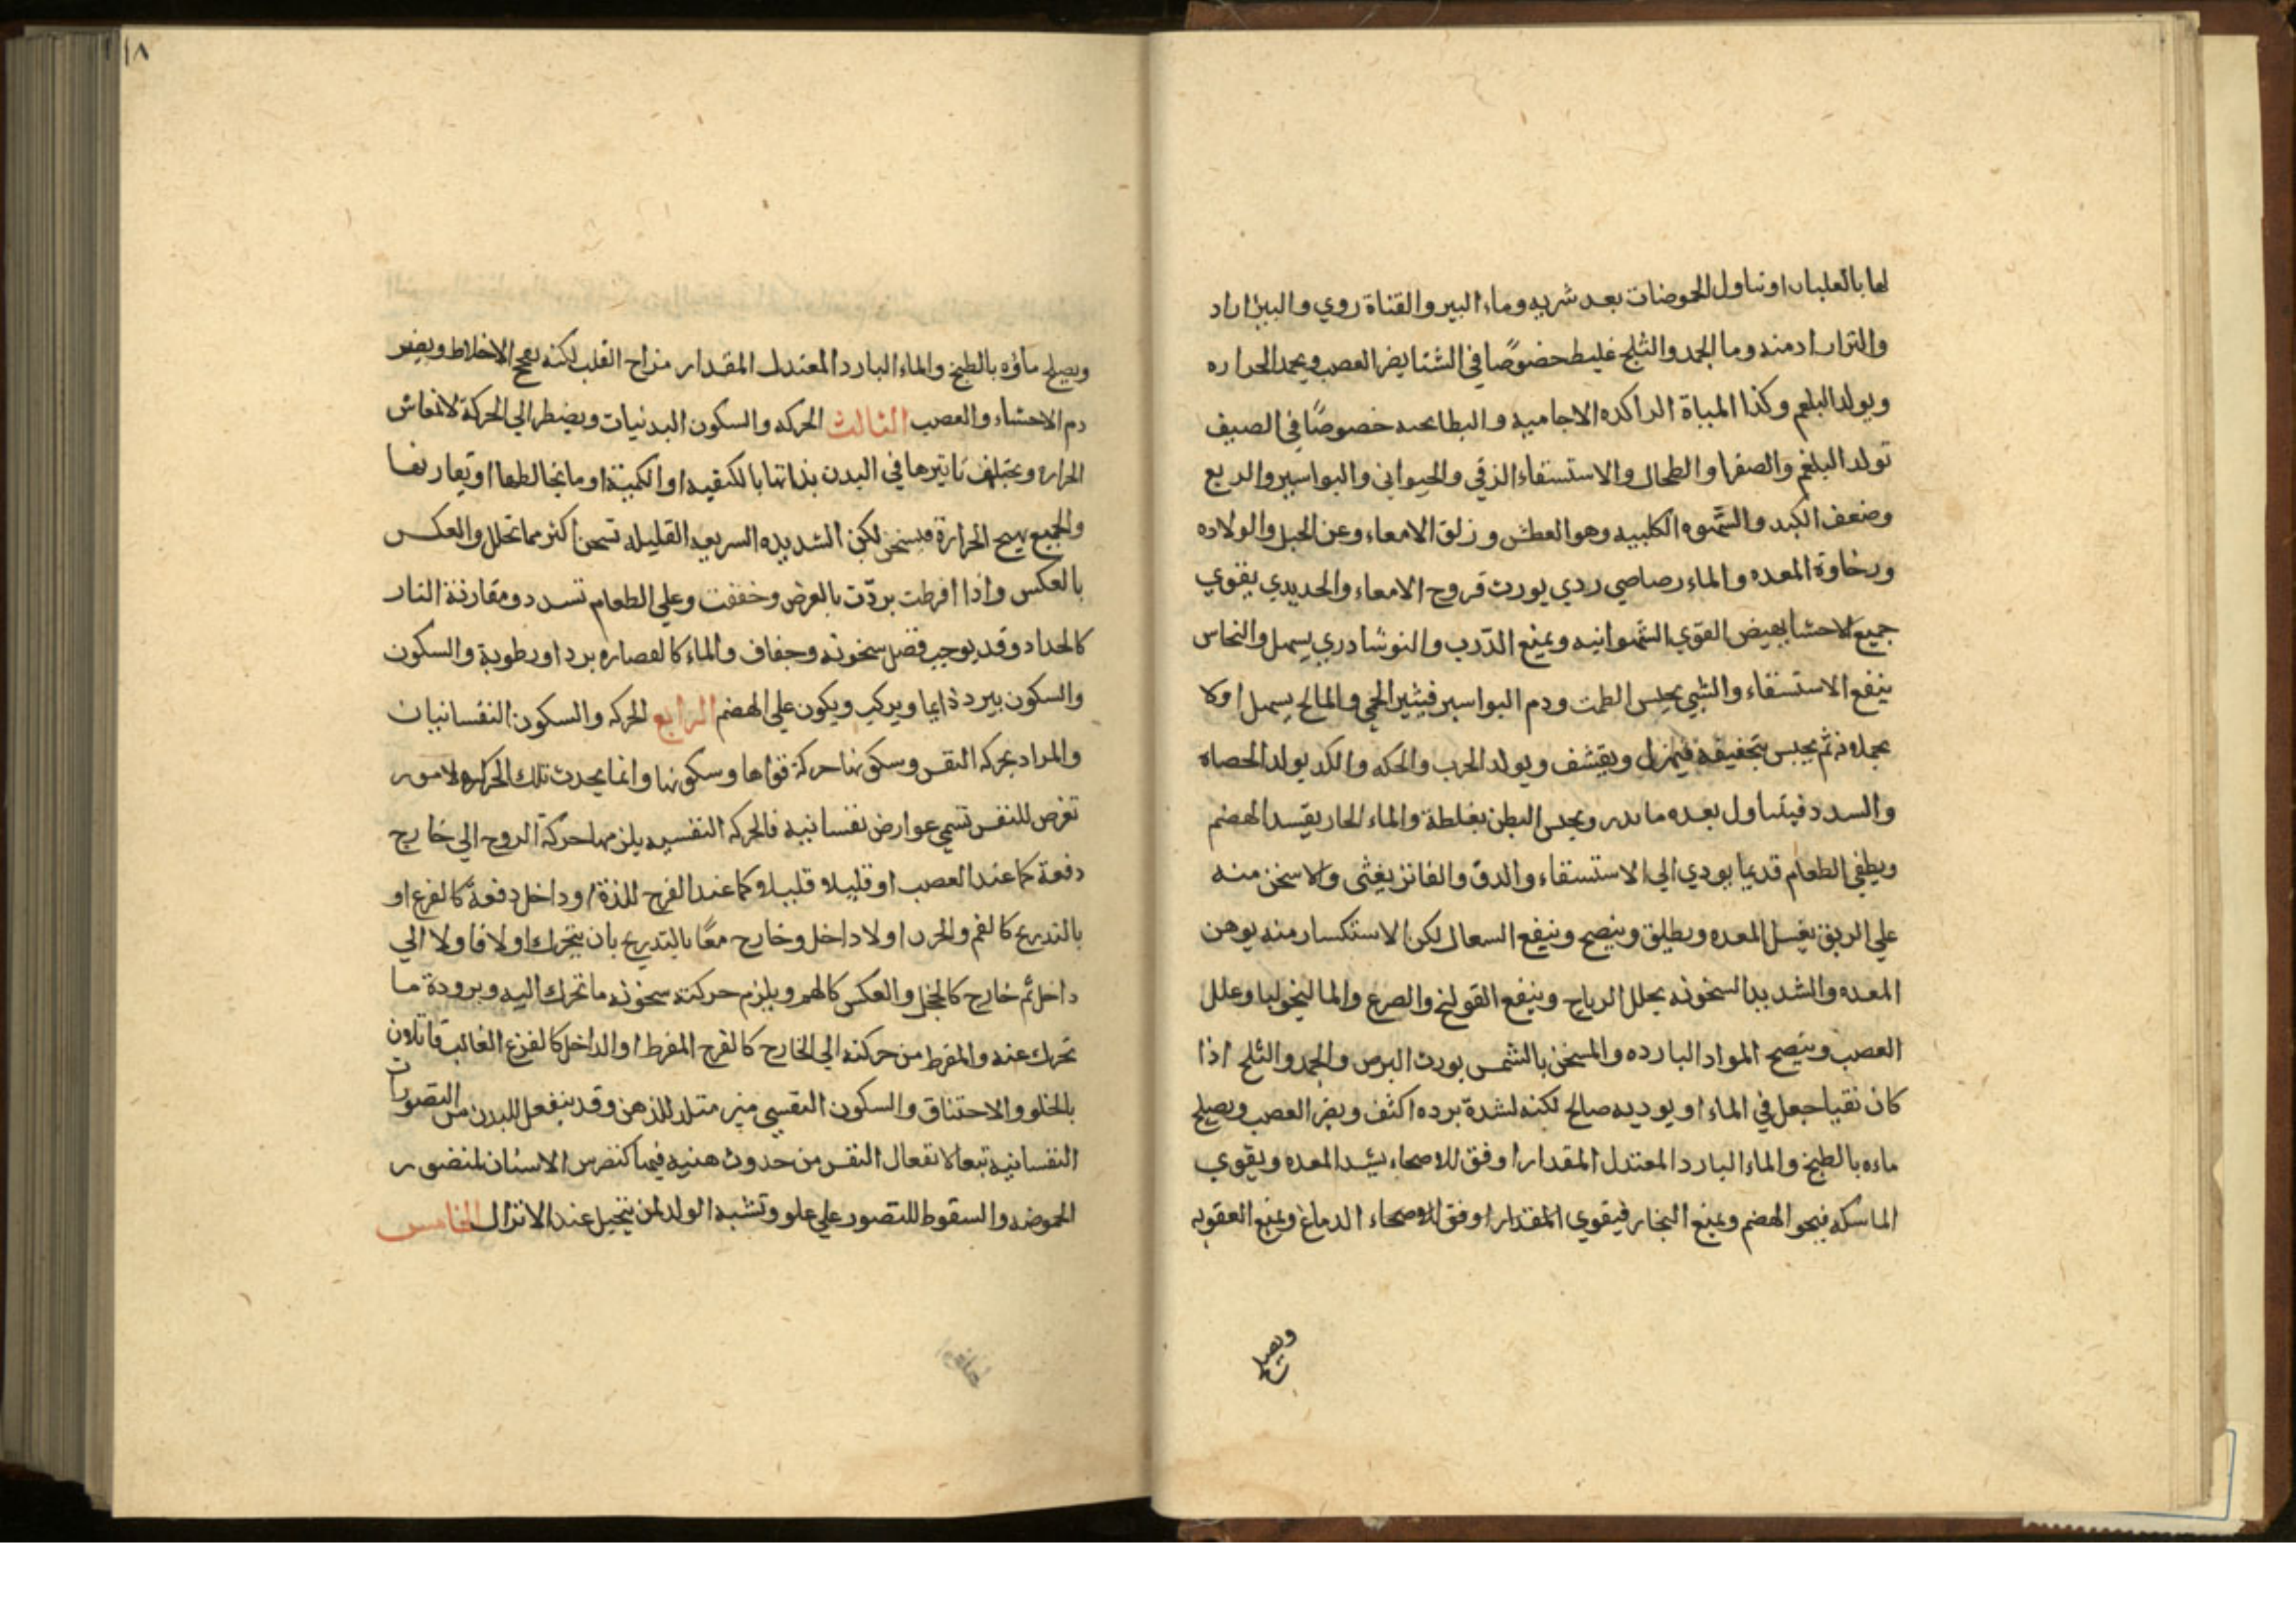 لها بالغلبان اوتناول الحموضات بعد شربه وماء البير والقناة ردي والبيز اراد
والترارادمنه وما الجمد والثلج غليط خضوصًا في الشتا يضر العصب ويجمد الحراره
ويولد البلغم وكذا المياة الراكده الاجاميه والبطايحيه خصوصًا في الصيف
تولد البلغم والصفرا والطحال والاستسقاء الزقي والحيواني والبواسير والربع
وضعف الكبد والشهوه الكلبيه وهو العطش وزلق الامعاء وعن الحبل والولاده
ورخاوة المعده والماء رصاصي ردي يورث قروح الامعاء والحديدي يقوي
جميع الاحشا يهيض القوي الشهوانيه ويمنع الذرب والنوشادري يسهل والنحاس
ينفع الاستسقاء والشبي يحبس الطمث ودم البواسير فيثير الحمي والمالح يسهل اولا
بحملانه ثم يحبس بتجفيفه فيهزل ويقشف ويولد الجرب والحكه والكد يولد الحصاه
والسدد فيتناول بعده ما يدر ويحبس البطن بغلطة والماء الحار يفسد الهضم
ويطفي الطعام قديما يودي الي الاستسقاء والدق والفاتر يغثى والاسخن منه
علي الريق يغسل المعده ويطلق وينضج وينفع السعال لكن الاستكسار منه يوهن
المعده والشديد السخونه يحلل الرياح وينفع القولنج والصرع والماليخوليا وعلل
العصب وينضج المواد البارده والمسخن بالشمس يورث البرص والجمد والثلج اذا
كان نقيا جعل في الماء او يوديه صالح لكنه لشدة برده اكثف ويضر العصب ويصلح
ماءه بالطبخ والماء البارد المعتدل المقدار اوفق للاصحاء يشد المعده ويقوي
الماسكه فيجو الهضم ويمنع البخار فيقوي المقدار اوفق للاصحاء الدماغ ويمنع العقوبه
ويصلح
١٨
ويصلح ماؤه بالطبخ والماء البارد المعتدل المقدار مزاج القلب لكنه يفجج الاخلاط ويضر
دم الاحشاء والعصب الثالث الحركه والسكون البدنيات ويضطر الي الحركة لانعاش
الحراره ويختلف تاثيرها في البدن بذاتها بالكيفيه او الكمية او ما يخالطها او يقارنها
والجميع يهيج الحرارة فيسخن لكن الشديده السريعه القليله تسخن اكثر مما تحلل والعكس
بالعكس واذا افرطت بردّت بالعرض وخففت وعلي الطعام تسدد ومقارنة النار
كالحداد وقد يوجب فضل سخونه وجفاف والماء كالقصاره برد اورطوبة والسكون
والسكون يبرد دايما ويركب ويكون علي الهضم الرابع الحركه والسكون النفسانيان
والمراد بحركه النفس وسكونها حركة قواها وسكونها وانما يحدث تلك الحركه لامور
تعرض للنفس تسمي عوارض نفسانيه فالحركه النفسيه يلزمها حركة الروح الي خارج
دفعة كما عند الغصب او قليلا قليلا وكما عند الفرح للذة او داخل دفعة كالفزع او
بالتدريج كالغم والحزن اولا داخل وخارج معًا بالتدريج بان يتحرك اولا فاولا الي
داخل ثم خارج كالخجل والعكس كالهم ويلزم حركته سخونه ما تحرك اليه وبرودة ما
تحرك عنه والمفرط من حركته الي الخارج كالفرح المفرط او الداخل كالفزع الغالب قاتلان
بالخلو والاحتناق والسكون النفسي مبر متلد للذهن وقد ينفعل البدن من التصورات
النفسانيه تبعا لانفعال النفس من حدوث هنيه فيها كتضرس الاسنان لمتصور
الحموضه والسقوط للتصور علي علو وتشبه الولد لمن يتخيل عند الانزال الخامس